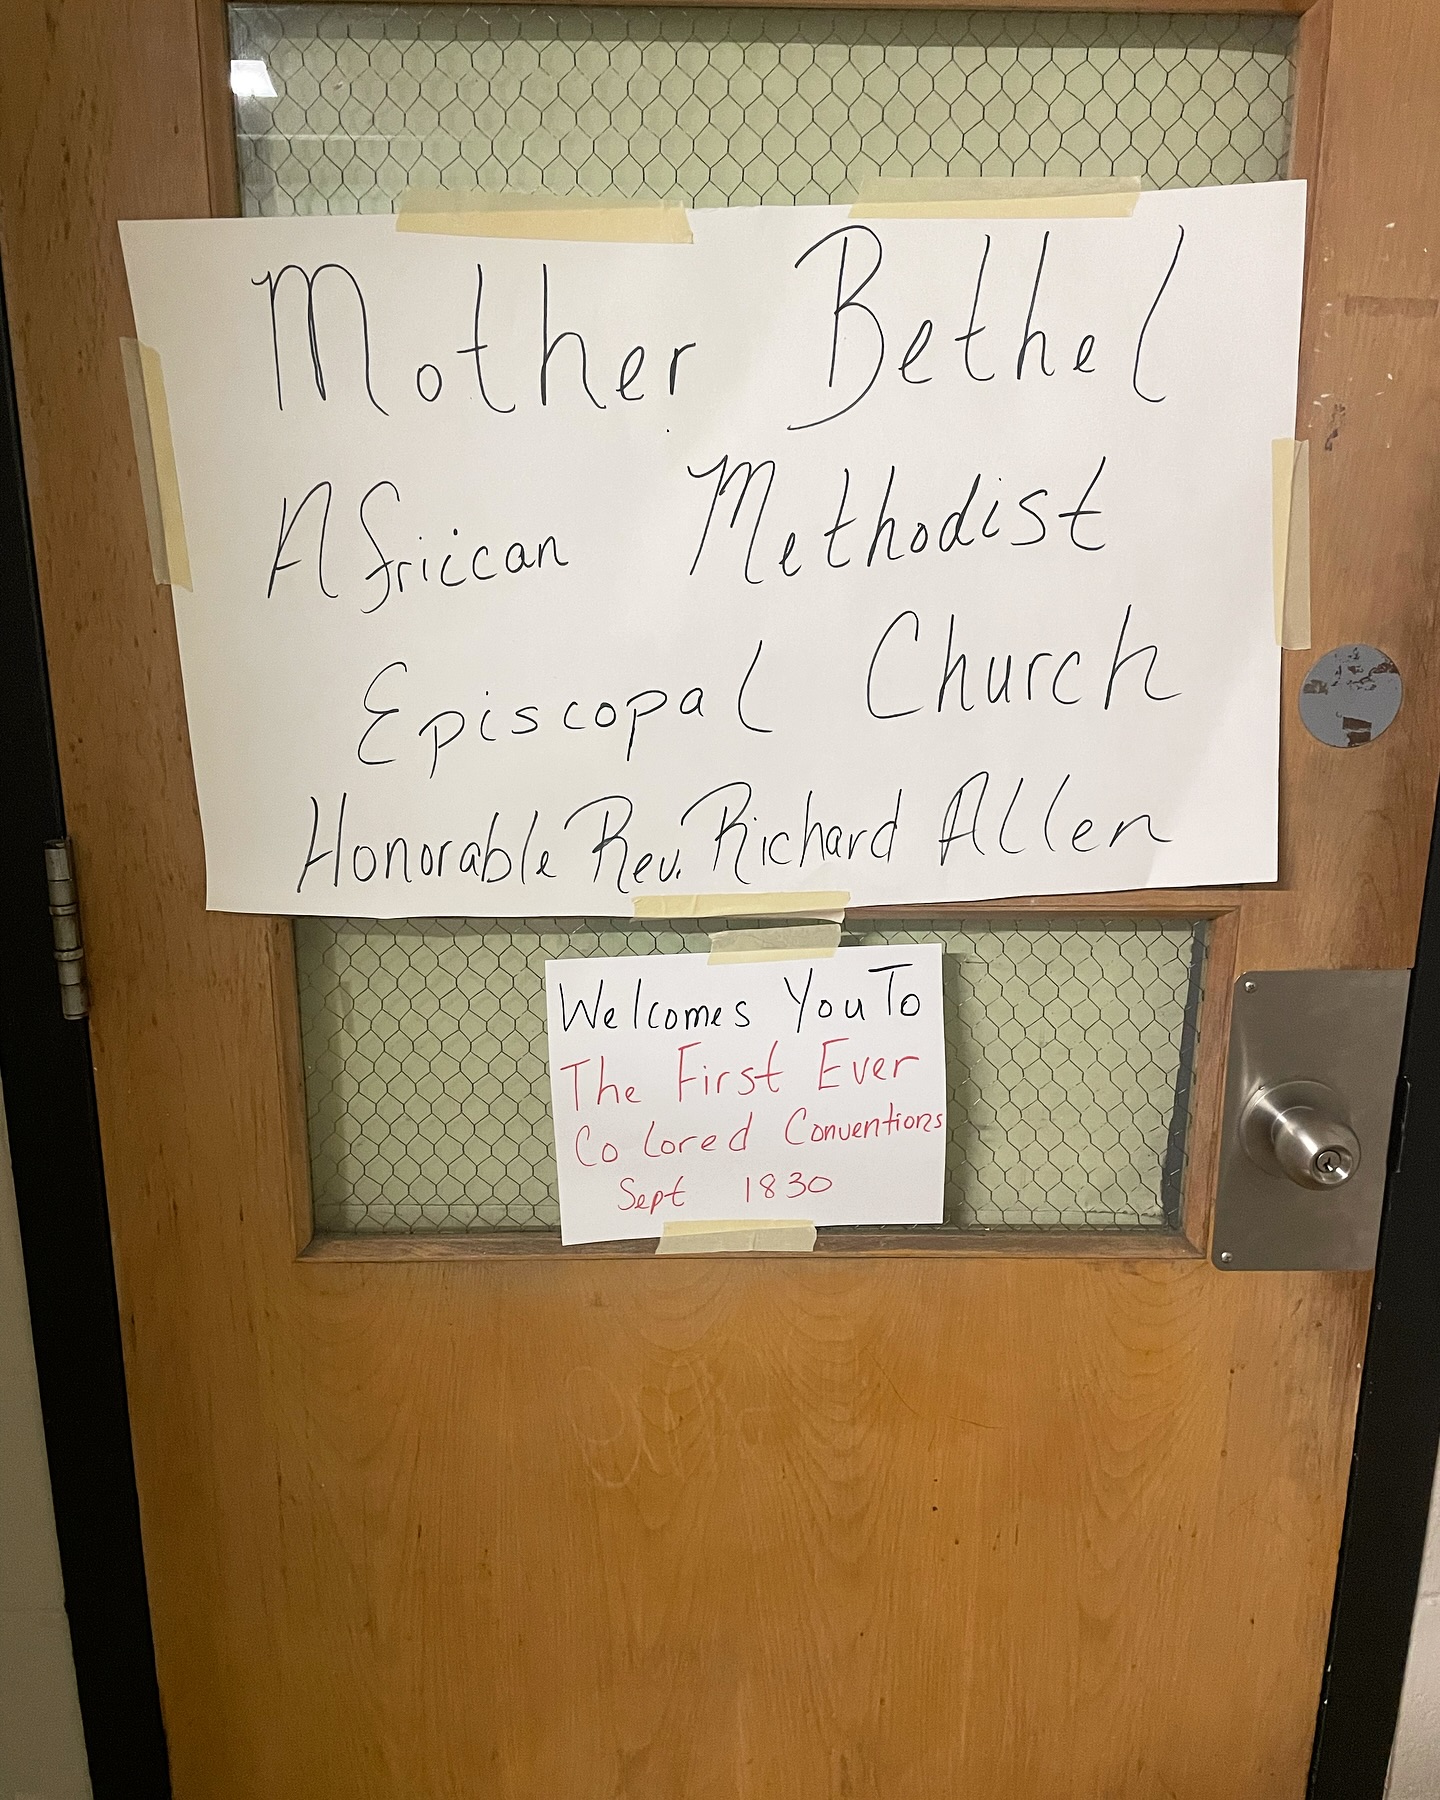 Mother Bethel
Africcan Methodist
Episcopal Church
Honorable Rev. Richard Allen
Welcomes You To
The First Ever
Colored Conventions
Sept 1830